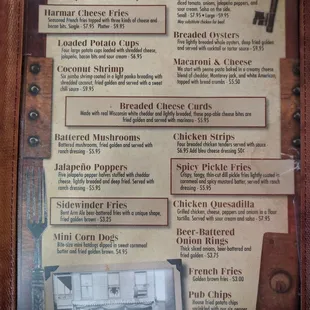 Harmar Cheese Fries
Seasoned French fries topped with three kinds of cheese and
bacon bits. Single - $7.95 Platter - $9.95
Loaded Potato Cups
Four large potato cups loaded with shredded cheese,
jalapeno, bacon bits and sour cream - $6.95
Coconut Shrimp
Six jumbo shrimp coated in a light panko breading with
shredded coconut, fried golden and served with a sweet
chili sauce - $9.95
diced tomato, onions, jalapeno peppers, and
sour cream. Salsa on the side.
Small - $7.95 • Large - $9.95
Any substitution results in extra charge
Breaded Oysters
Five lightly breaded whole oysters, deep fried golden
and served with cocktail or tartar sauce - $9.95
Macaroni & Cheese
We start with penne pasta baked in a creamy cheese
blend of cheddar, Monterey jack, and white American,
topped with bread crumbs - $5.50
Breaded Cheese Curds
Made with real Wisconsin white cheddar and lightly breaded, these pop-able cheese bites are
fried golden and served with marinara - $5.95
Battered Mushrooms
Battered mushrooms, fried golden and served with
ranch dressing - $5.95
Jalapeño Poppers
Five jalapeno pepper halves stuffed with cheddar
cheese, lightly breaded and deep fried. Served with
ranch dressing - $5.95
Sidewinder Fries
Bent Arm Ale beer-battered fries with a unique shape,
fried golden brown - $3.25
Mini Corn Dogs
Bite-size mini hotdogs dipped in sweet cornmeal
batter and fried golden brown. $4.95
Chicken Strips
Four breaded chicken tenders served with sauce
$6.95 Add bleu cheese dressing 50¢
Spicy Pickle Fries
Crispy, tangy, thin-cut dill pickle fries lightly coated in
cornmeal and spicy mustard batter, served with ranch
dressing - $5.95
Chicken Quesadilla
Grilled chicken, cheese, peppers and onions in a flour
tortilla. Served with sour cream and salsa - $7.95
Beer-Battered
Onion Rings
Thick sliced onions, beer-battered and
fried golden - $3.75
French Fries
Golden brown fries - $3.00
Pub Chips